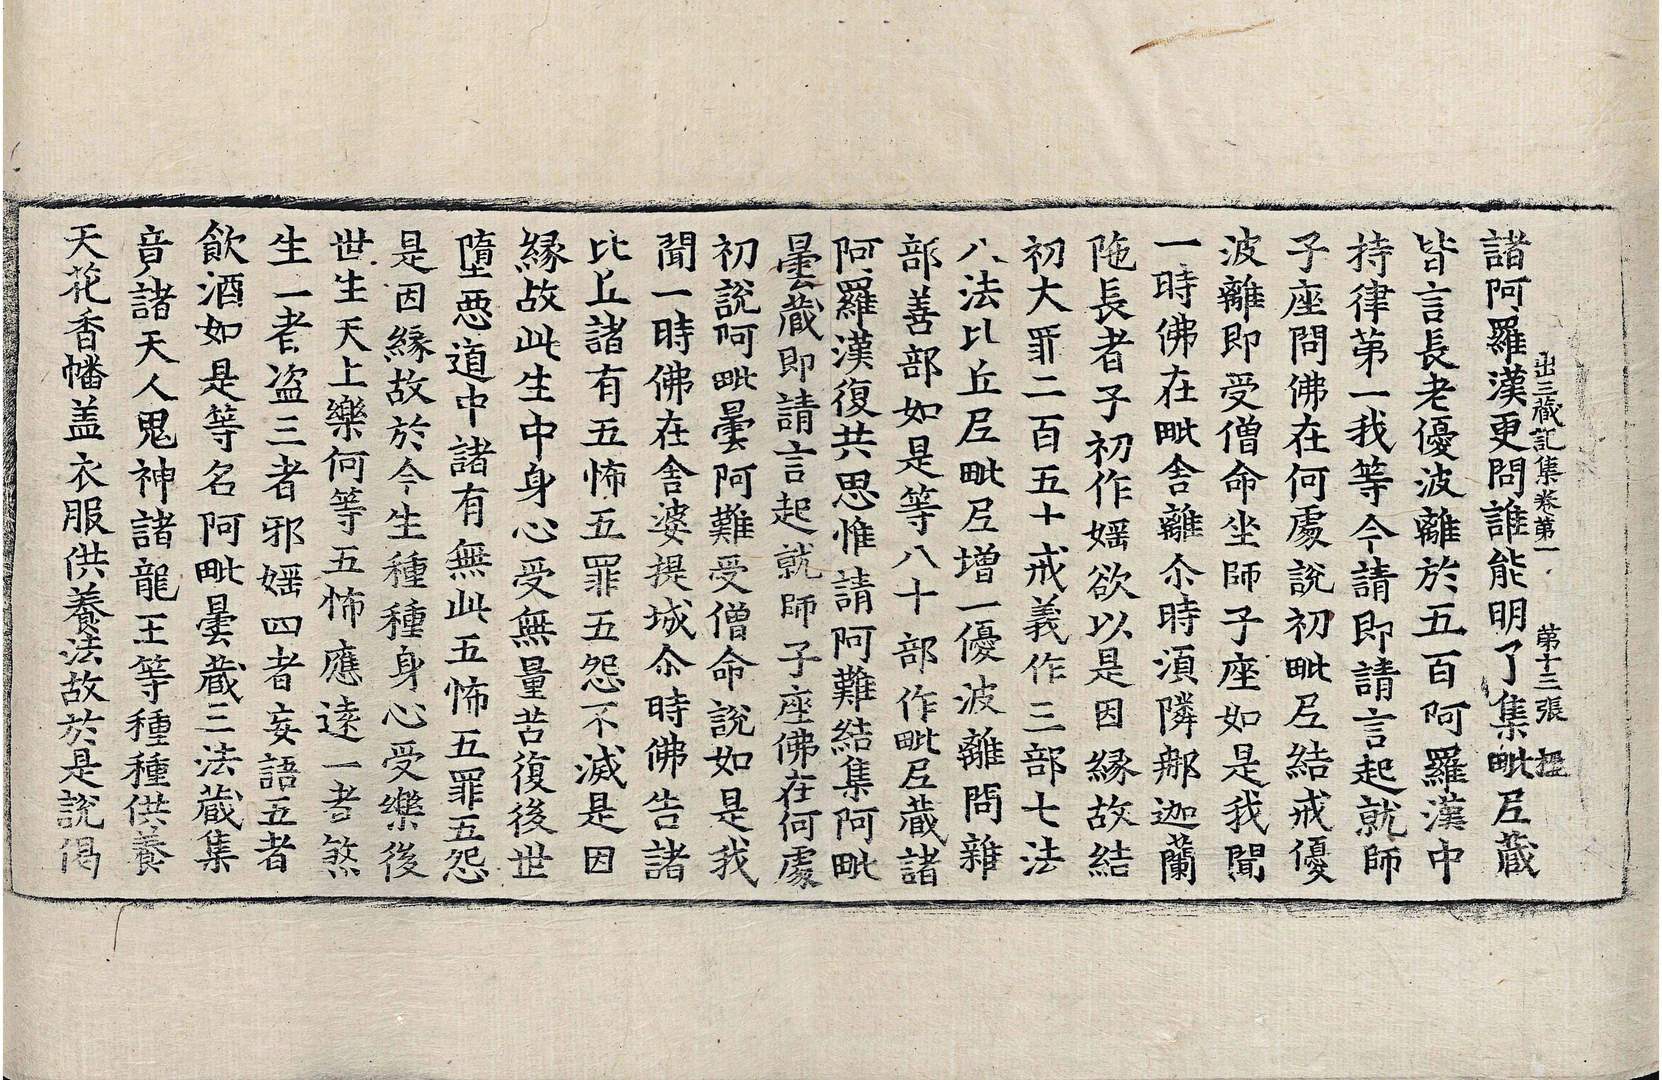 出三藏記集卷第一　第十三張　𢰅
諸阿羅漢更問誰能明了集毗尼藏
皆言長老優波離於五百阿羅漢中
持律第一我等今請即請言起就師
子座問佛在何處說初毗尼結戒優
波離即受僧命坐師子座如是我聞
一時佛在毗舍離尒時湏隣那迦蘭
陁長者子初作婬欲以是因緣故結
初大罪二百五十戒義作三部七法
八法比丘尼毗尼增一優波離問雜
部善部如是等八十部作毗尼藏諸
阿羅漢復共思惟請阿難結集阿毗
曇藏即請言起就師子座佛在何處
初說阿毗曇阿難受僧命說如是我
聞一時佛在舍婆提城尒時佛告諸
比丘諸有五怖五罪五怨不滅是因
緣故此生中身心受無量苦復後世
墮惡道中諸有無此五怖五罪五怨
是因緣故於今生種種身心受樂後
世生天上樂何等五怖應遠一者煞
生一者盜三者邪婬四者妄語五者
飲酒如是等名阿毗曇藏三法藏集
竟諸天人鬼神諸龍王等種種供養
天花香幡盖衣服供養法故於是說偈